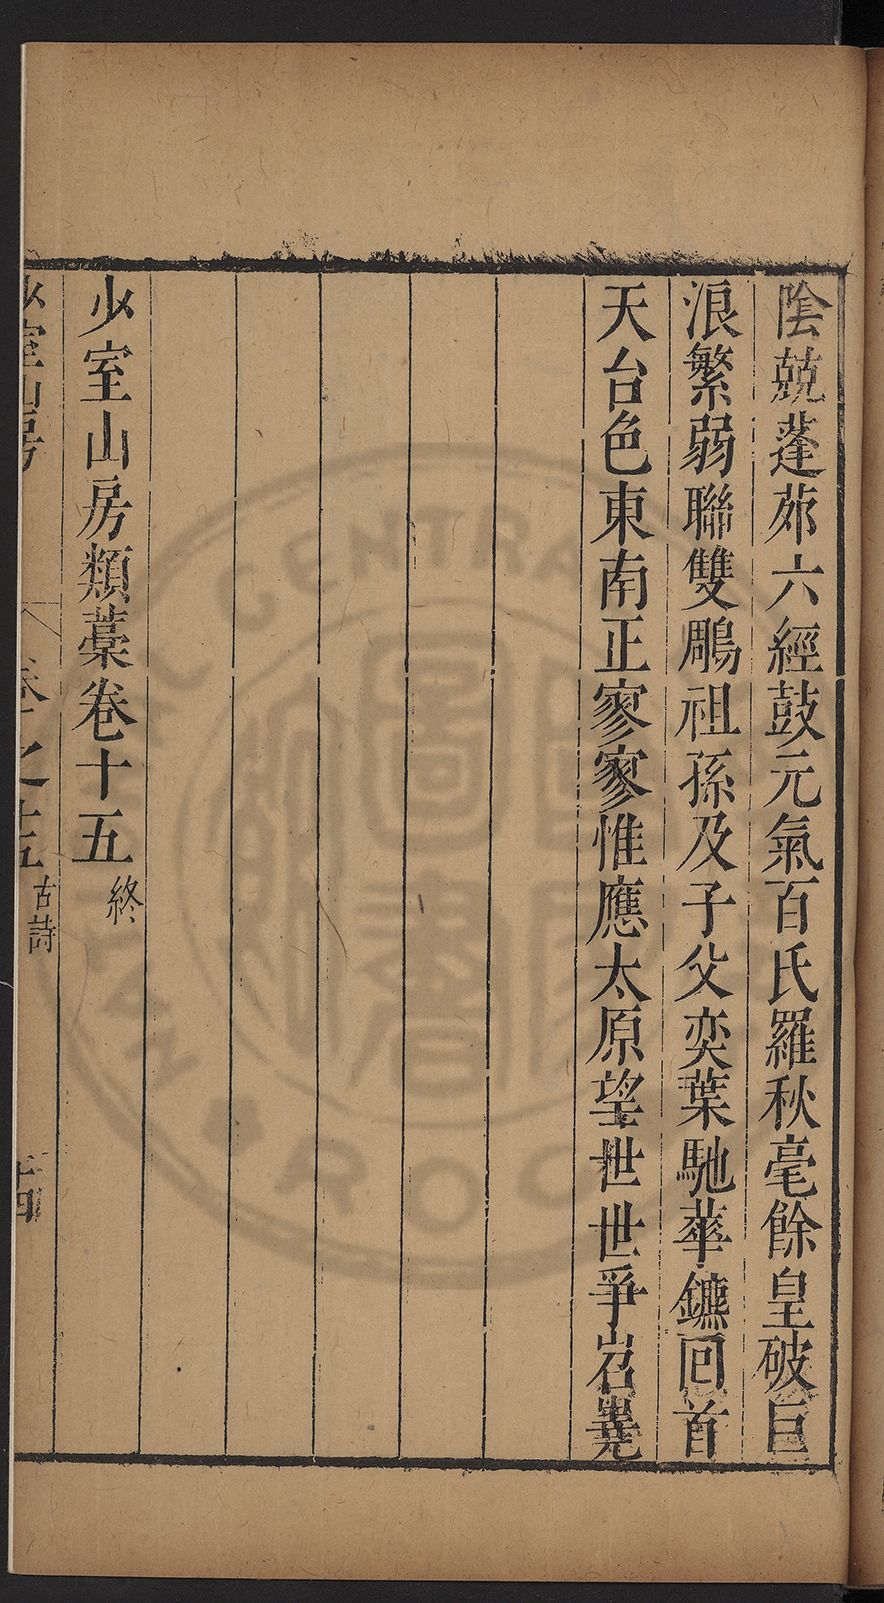 陰兢蓬茆六經鼓元氣百氏羅秋毫餘皇破巨
浪繁弱聯雙鵰祖孫及子父奕葉馳華鑣回首
天台色東南正寥寥惟應太原望世世爭岧嶤
少室山房類藁卷十五終
少室山房 卷之十五 古詩 十四